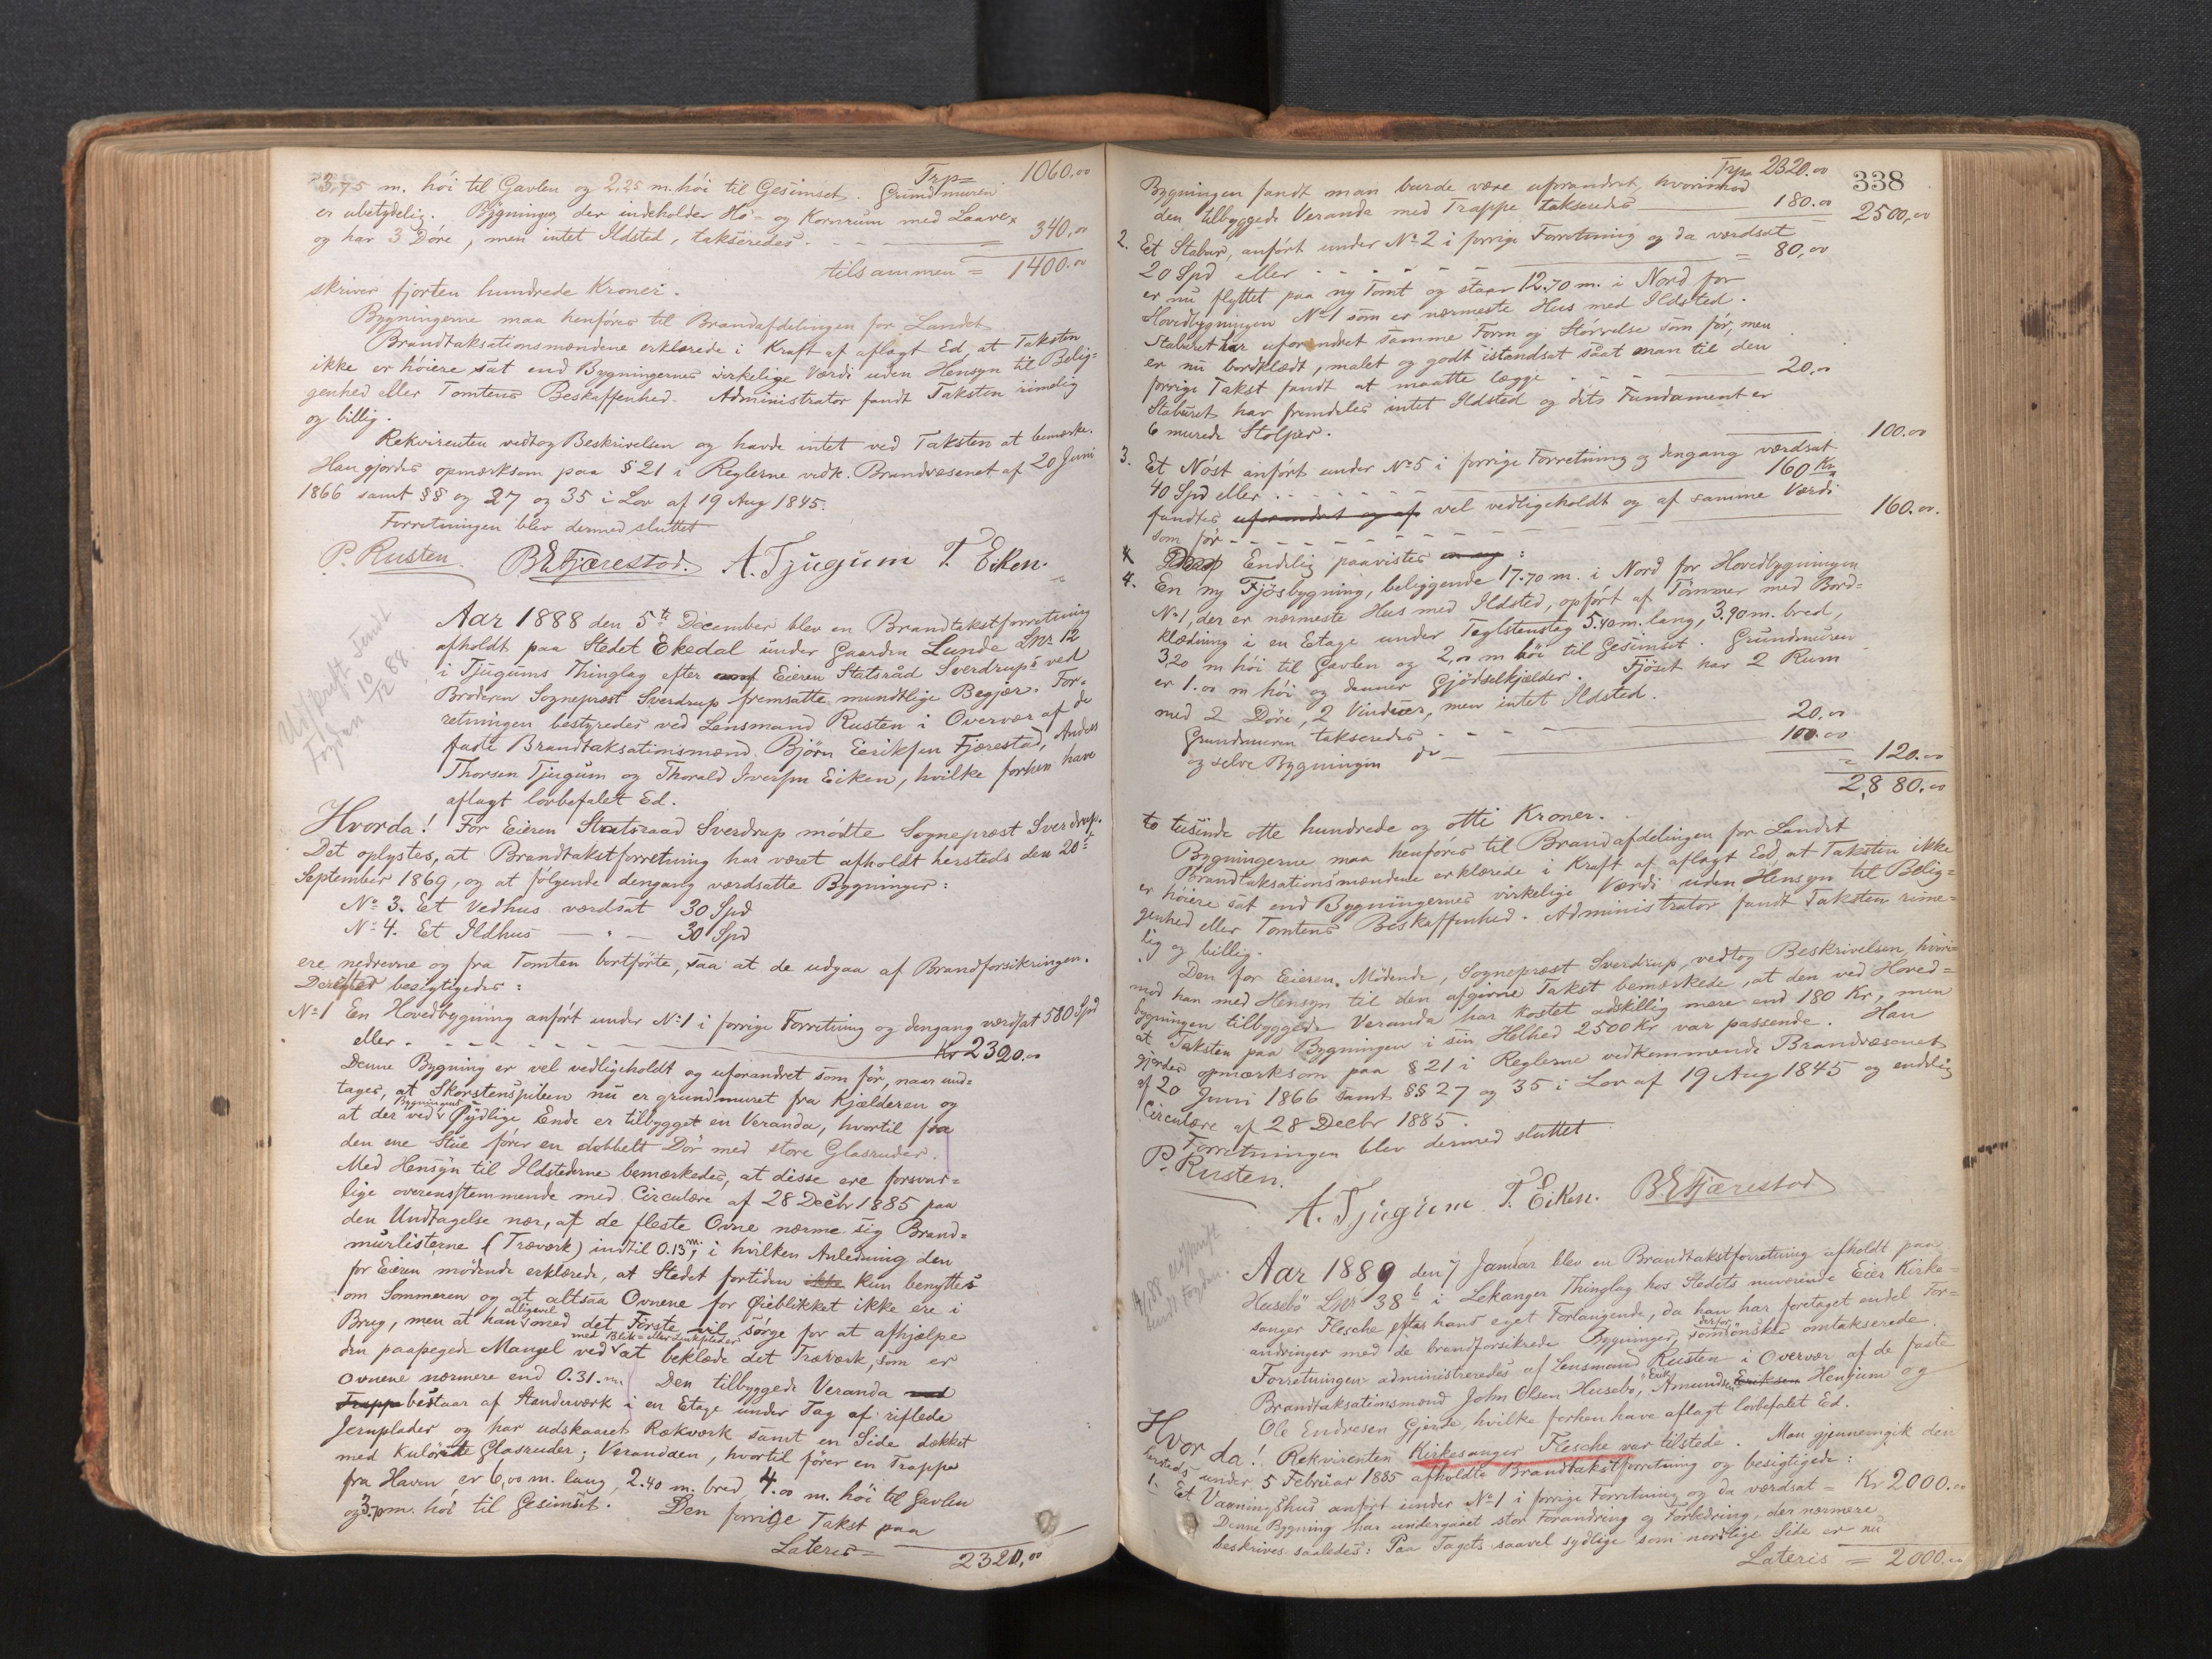 Trp= 1060.00
3,75 m. hói til Gavlen og 2,25 m. hói til Gesimset. Grundmuren
er ubetydelig. Bygningen, der indeholder Hø- og Kornrum med Laave,
og har 3 Dóre, men intet Ildsted, takseredes - - = 340,00
tilsammen = 1400.00
skriver fjorten hundrede Kroner.
Bygningerne maa henføres til Brandafdelingen for Landet.
Brandtaksationsmændene erklærede i Kraft af aflagt Ed, at Taksten
ikke er hóiere sat end Bygningernes virkelige Værdi uden Hensyn til Belig=
genhed eller Tomtens Beskaffenhed. Administrator fandt Taksten rimelig
og billig.
Rekvirenten vedtog Beskrivelsen og havde intet ved Taksten at bemærke.
Han gjordes opmærksom paa § 21 i Reglerne vedk. Brandvæsenet af 20 Juni
1866 samt §§ og 27 og 35 i Lov af 19 Aug 1845.
Forretningen blev dermed sluttet
P. Rusten. B E Fjærestad. A. Tjugum T. Eiken.
Udskrift sendt
Fogden 10/12 88.
Aar 1888 den 5te December blev en Brandtakstforretning
afholdt paa Stedet Ekedal under Gaarden Lunde Lnr 12
i Tjugums Thinglag efter Eieren Statsråd Sverdrups ved
Broderen Sognepræst Sverdrup fremsatte mundtlige Begjær. For=
retningen bestyredes ved Lensmand Rusten i Overvær af de
faste Brandtaksationsmænd Bjórn Eeriksen Fjærestad, Anders
Thorsen Tjugum og Thorald Iversen Eiken, hvilke forhen have
aflagt lovbefalet Ed.
Hvorda! For Eieren Statsraad Sverdrup módte Sognepræst Sverdrup.
Det oplystes, at Brandtakstforretning har været afholdt hersteds den 20de
September 1869, og at følgende dengang værdsatte Bygninger:
No 3. Et Vedhus værdsat 30 Spd
No 4. Et Ildhus — " — 30 Spd
ere nedrevne og fra Tomten bortførte, saa at de udgaa af Brandforsikringen.
Derefter besigtigedes:
No 1 En Hovedbygning anført under No 1 i forrige Forretning og dengang værdsat 580 Spd
eller - - - - - - Kr 2320.00
Denne Bygning er vel vedligeholdt og uforandret som før, naar und=
tages, at Skorstenspiben nu er grundmuret fra Kjælderen og
at der ved Bygningens sydlige Ende er tilbygget en Veranda, hvortil fra
den ene Stue fører en dobbelt Dór med store Glasruder.
Med Hensyn til Ildstederne bemærkedes, at disse ere forsvar=
lige overensstemmende med Circulære af 28 Decbr 1885 paa
den Undtagelse nær, at de fleste Ovne nærme sig Brand=
murlisterne (Træværk) indtil 0.13 m; i hvilken Anledning den
for Eieren mødende erklærede, at Stedet fortiden ikke kun benyttes
om Sommeren og at altsaa Ovnene for Øieblikket ikke ere i
Brug, men at han alligevel med det Første vil sørge for at afhjælpe
den paapegede Mangel ved med Blik- eller Zinkplader at beklæde det Træværk, som er
Ovnene nærmere end 0.31. m. Den tilbyggede Veranda med
Trappe bestaar af Standerværk i en Etage under Tag af riflede
Jernplader og har udskaaret Rækværk samt en Side dækket
med kulørte Glasruder; Verandaen, hvortil fører en Trappe
fra Haven, er 6,00 m. lang, 2.40 m. bred, 4.00 m. hói til Gavlen
og 3,00 m. hói til Gesimset. Den forrige Takst paa
Lateris = 2320,00
338
Trp= 2320.00
Bygningen fandt man burde være uforandret, hvorimod
den tilbyggede Veranda med Trappe takseredes — 180.00 2500,00
2. Et Stabur, anført under No 2 i forrige Forretning og da værdsat
20 Spd eller - - - - - = 80,00
er nu flyttet paa ny Tomt og staar 12.70 m. i Nord for
Hovedbygningen No 1 som er nærmeste Hus med Ildsted.
Staburet har uforandret samme Form og Størrelse som før, men
er nu bordklædt, malet og godt istandsat saat man til den
forrige Takst fandt at maatte lægge - - - 20,00
Staburet har fremdeles intet Ildsted og dets Fundament er
6 murede Stolper. 100.00
3. Et Nóst anført under No 5 i forrige Forretning og dengang værdsat
40 Spd eller - - - - - 160 Kr
fandtes uforandret og af vel vedligeholdt og af samme Værdi
som før - - - - - 160.00.
Endelig paavistes :
4. En ny Fjósbygning, beliggende 17.70 m. i Nord for Hovedbygningen
No 1, der er nærmeste Hus med Ildsted, opført af Tømmer med Bord=
klædning i en Etage under Teglstenstag 5.40 m. lang, 3.90 m. bred,
3,20 m hói til Gavlen og 2,00 m hói til Gesimset. Grundmuren
er 1.00 m hói og danner Gjødselkjælder. Fjóset har 2 Rum
med 2 Dóre, 2 Vinduer, men intet Ildsted.
Grundmuren takseredes - - - 20,00
og selve Bygningen do — 100.00
= 120.00
2,880.00
to tusinde otte hundrede og otti Kroner.
Bygningerne maa henføres til Brandafdelingen for Landet
Brandtaksationsmændene erklærede i Kraft af aflagt Eed, at Taksten ikke
er hóiere sat end Bygningernes virkelige Værdi uden Hensyn til Belig=
genhed eller Tomtens Beskaffenhed. Administrator fandt Taksten rime=
lig og billig.
Den for Eieren Mødende, Sognepræst Sverdrup, vedtog Beskrivelsen, hvori=
mod han med Hensyn til den afgivne Takst bemærkede, at den ved Hoved=
bygningen tilbyggede Veranda har kostet adskillig mere end 180 Kr, men
at Taksten paa Bygningen i sin Helhed 2500 Kr var passende. Han
gjordes opmærksom paa § 21 i Reglerne vedkommende Brandvæsenet
af 20 Juni 1866 samt §§ 27 og 35 i Lov af 19 Aug 1845 og endelig
Circulære af 28 Decbr 1885.
Forretningen blev dermed sluttet
P. Rusten.
A. Tjugum T. Eiken. B. E Fjærestad
Aar 1889 den 7 Januar blev en Brandtakstforretning afholdt paa
Husebö Lnr 38 i Lekanger Thinglag hos Stedets nuværende Eier Kirke=
sanger Flesche efter hans eget Forlangende, da han har foretaget endel For=
andringer med de brandforsikrede Bygninger, som derfor ønskes omtakserede.
Forretningen administreredes af Lensmand Rusten i Overvær af de faste
Brandtaksationsmænd John Olsen Husebø, Erik Amundsen Eriksen Henjum og
Ole Endresen Gjerde, hvilke forhen have aflagt lovbefalet Ed.
Hvor da! Rekvirenten Kirkesanger Flesche var tilstede. Man gjennemgik den
hersteds under 5 Februar 1885 afholdte Brandtakstforretning og besigtigede:
1. Et Vaaningshus anført under No 1 i forrige Forretning og da værdsat = Kr 2000.00
Denne Bygning har undergaaet stor Forandring og Forbedring, der nærmere
beskrives saaledes: Paa Tagets saavel sydlige som nordlige Side er nu
Lateris = 2000.00